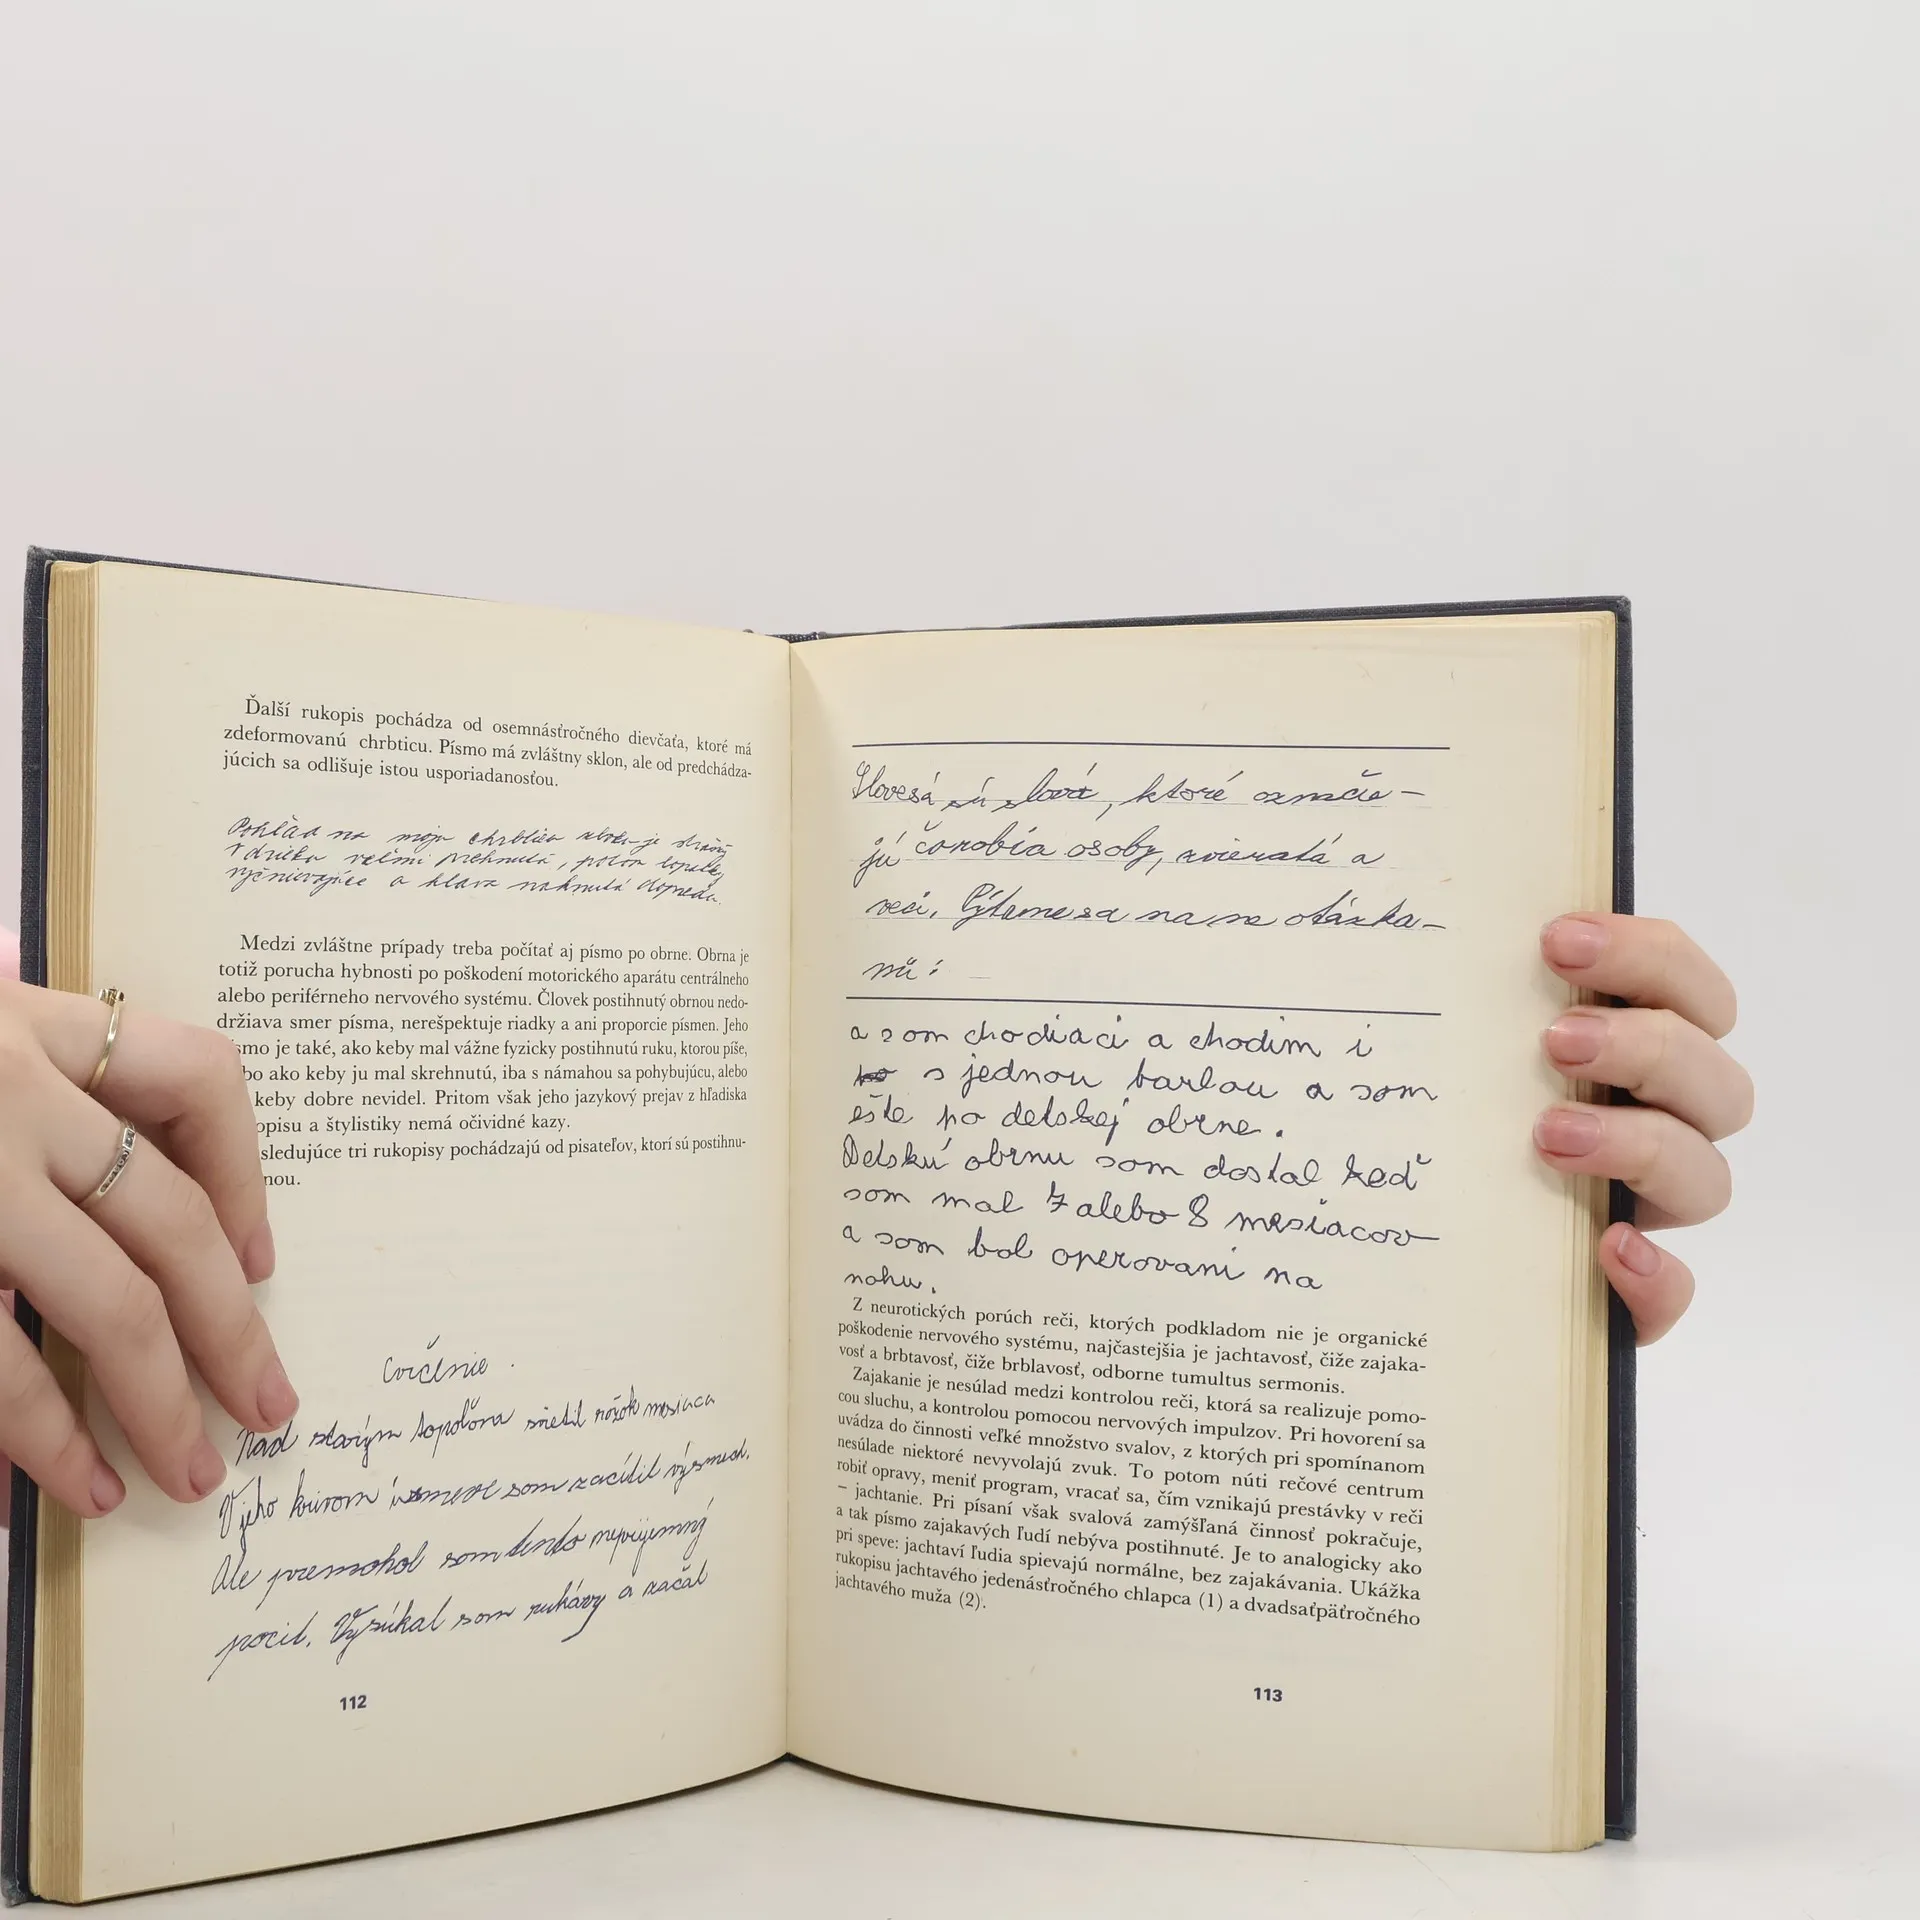 Ďalší rukopis pochádza od osemnásťročného dievčaťa, ktoré má
zdeformovanú chrbticu. Písmo má zvláštny sklon, ale od predchádza-
júcich sa odlišuje istou usporiadanosťou.
Pohľad na moju chrbticu zboku je
veľmi prehnutá, potom lopatky
vyčnievajúce a hlava nahnutá dopredu.
Medzi zvláštne prípady treba počítať aj písmo po obrne. Obrna je
totiž porucha hybnosti po poškodení motorického aparátu centrálneho
alebo periférneho nervového systému. Človek postihnutý obrnou nedo-
držiava smer písma, nerešpektuje riadky a ani proporcie písmen. Jeho
smo je také, ako keby mal vážne fyzicky postihnutú ruku, ktorou píše,
bo ako keby ju mal skrehnutú, iba s námahou sa pohybujúcu, alebo
keby dobre nevidel. Pritom však jeho jazykový prejav z hľadiska
opisu a štylistiky nemá očividné kazy.
sledujúce tri rukopisy pochádzajú od pisateľov, ktorí sú postihnu-
nou.
Cvičenie.
Nad starým topoľom svietil rôžok mesiaca
V jeho krivom úsmeve som zacítil výsmech.
Ale premohol som tento nepríjemný
pocit. Vysúkal som rukávy a začal
112
Slovesá sú slová, ktoré označu-
jú čo robia osoby, zvieratá a
veci. Pýtame sa na ne otázka-
mi:
a som chodiaci a chodim i
s jednou barlou a som
ešte po detskej obrne.
Detskú obrnu som dostal keď
som mal 7 alebo 8 mesiacov
a som bol operovani na
nohu.
Z neurotických porúch reči, ktorých podkladom nie je organické
poškodenie nervového systému, najčastejšia je jachtavosť, čiže zajaka-
vosť a brbtavosť, čiže brblavosť, odborne tumultus sermonis.
Zajakanie je nesúlad medzi kontrolou reči, ktorá sa realizuje pomo-
cou sluchu, a kontrolou pomocou nervových impulzov. Pri hovorení sa
uvádza do činnosti veľké množstvo svalov, z ktorých pri spomínanom
nesúlade niektoré nevyvolajú zvuk. To potom núti rečové centrum
robiť opravy, meniť program, vracať sa, čím vznikajú prestávky v reči
– jachtanie. Pri písaní však svalová zamýšľaná činnosť pokračuje,
a tak písmo zajakavých ľudí nebýva postihnuté. Je to analogicky ako
pri speve: jachtaví ľudia spievajú normálne, bez zajakávania. Ukážka
rukopisu jachtavého jedenásťročného chlapca (1) a dvadsaťpäťročného
jachtavého muža (2).
113